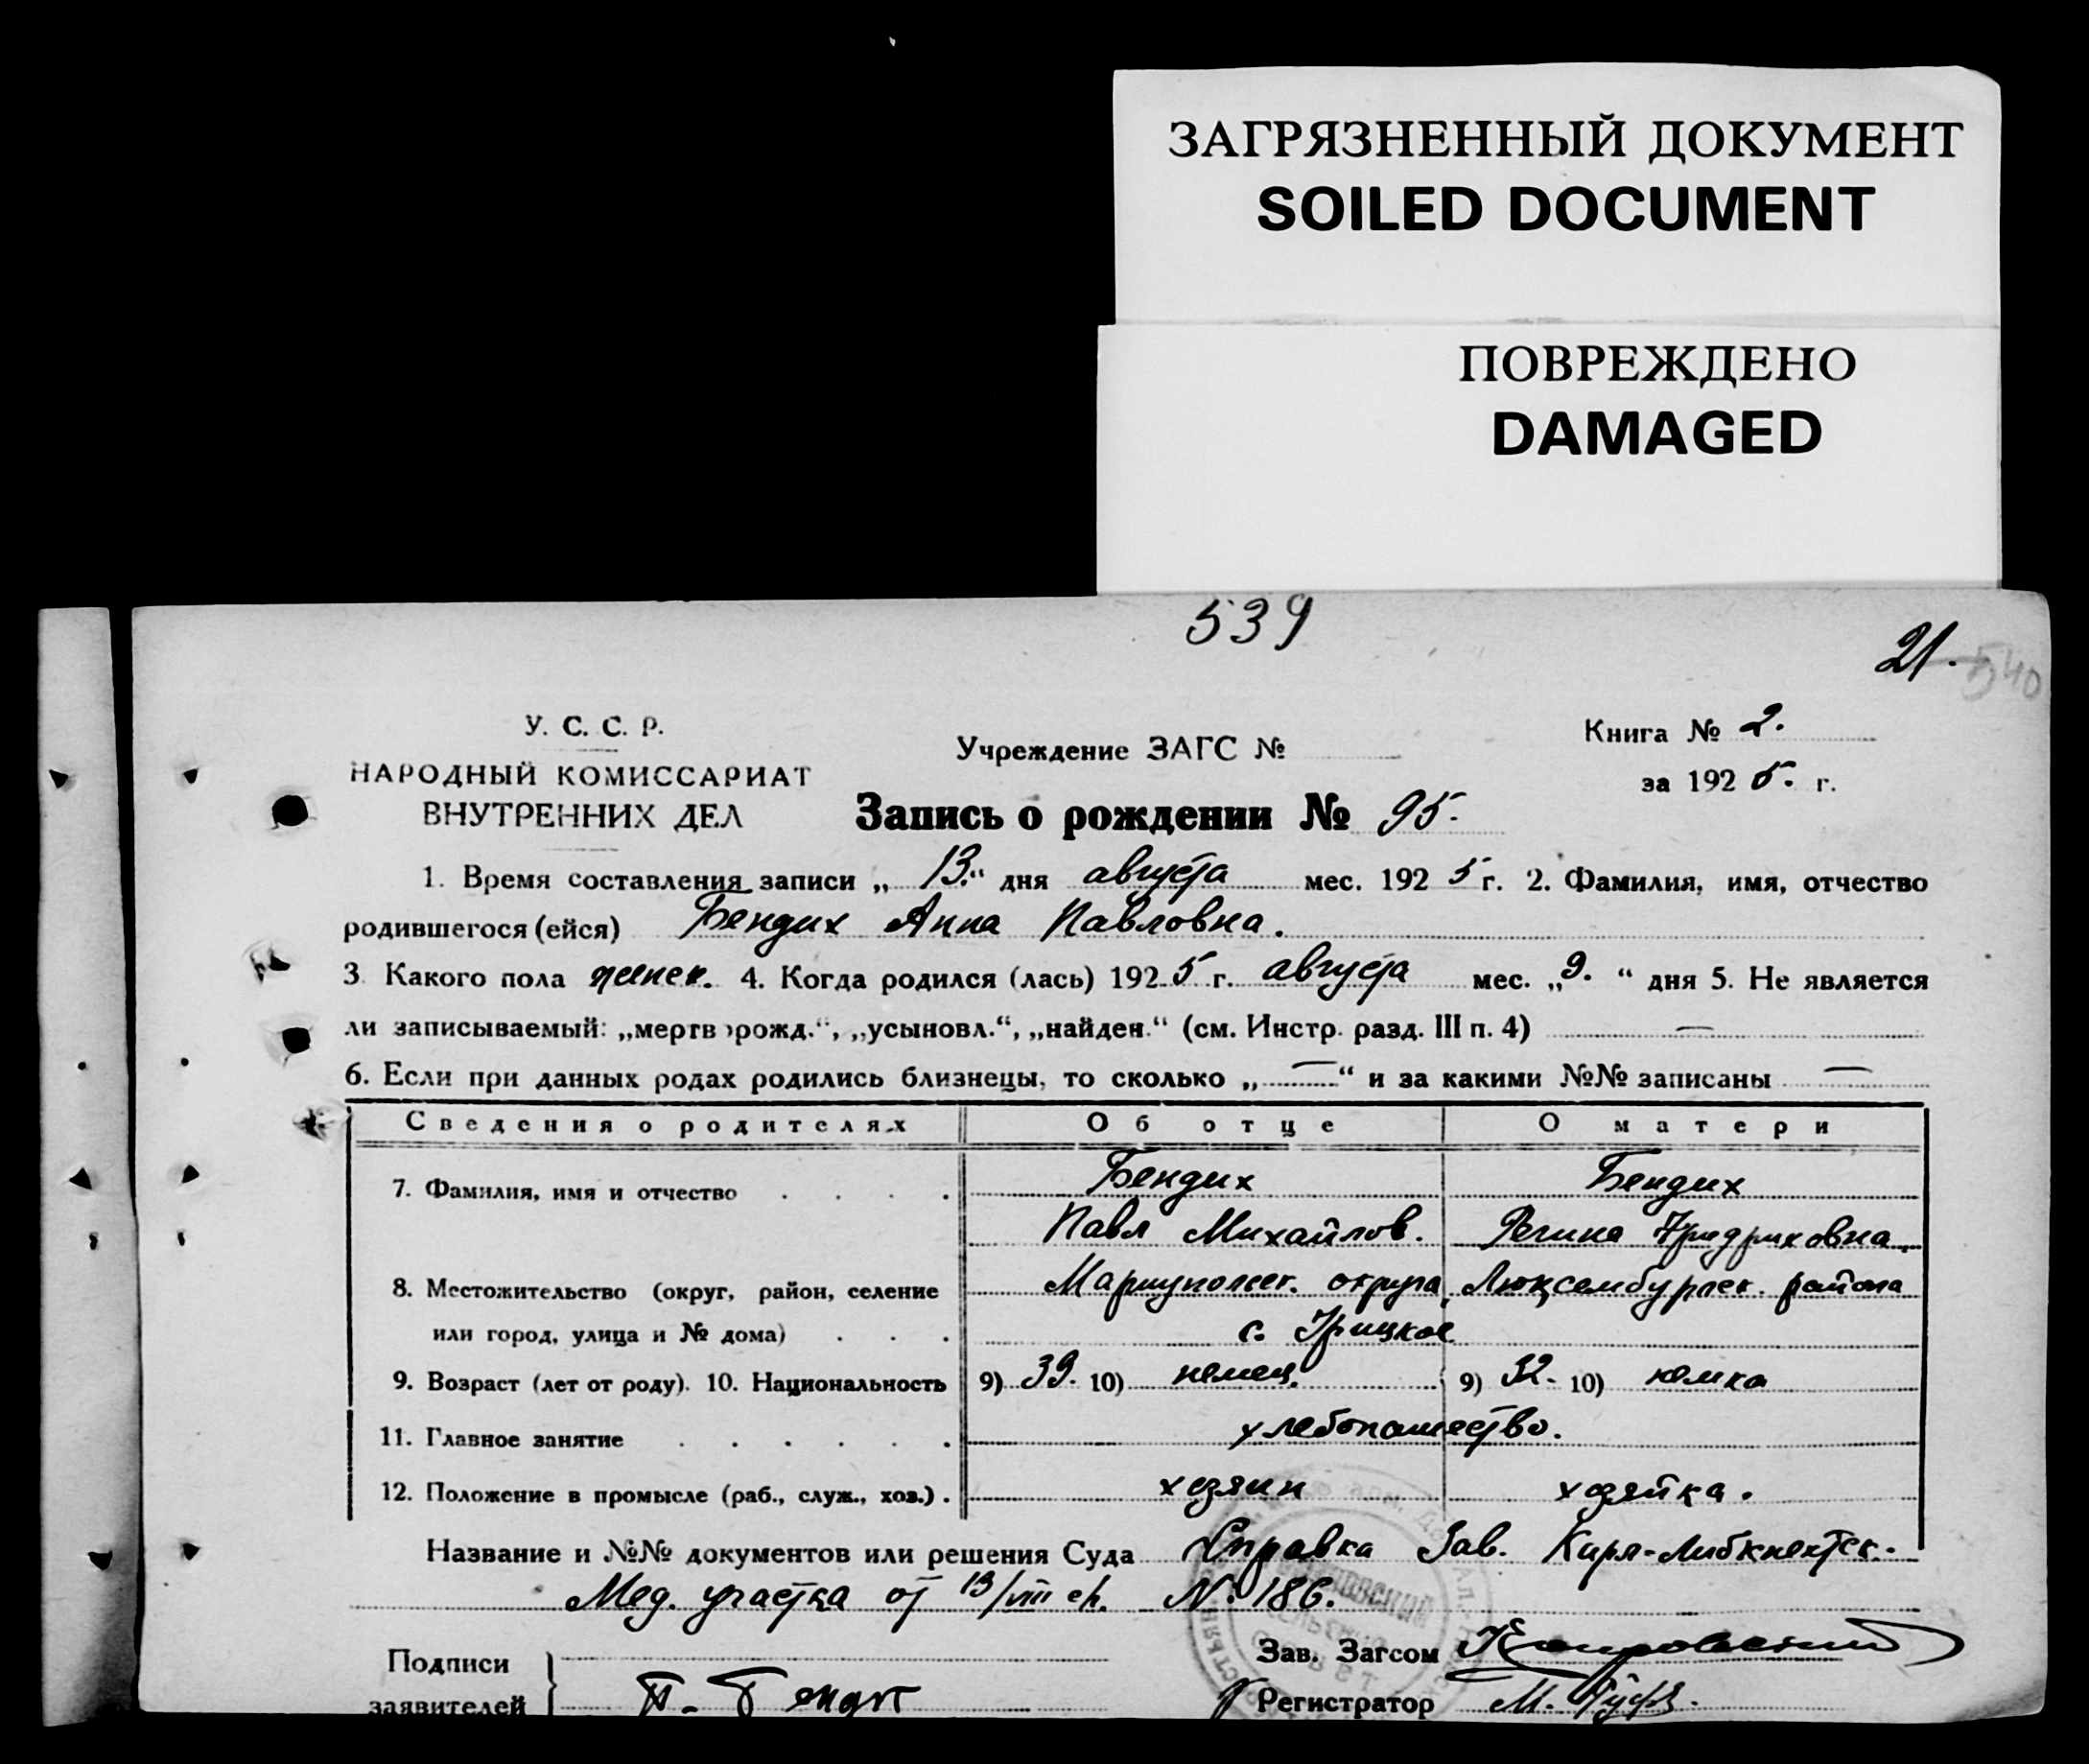 ЗАГРЯЗНЕННЫЙ ДОКУМЕНТ
SOILED DOCUMENT
ПОВРЕЖДЕНО
DAMAGED
539
21. 540
У. С. С. Р.
НАРОДНЫЙ КОМИССАРИАТ
ВНУТРЕННИХ ДЕЛ
Учреждение ЗАГС №
Книга № 2.
за 1925. г.
Запись о рождении № 95.
1. Время составления записи „13.“ дня августа мес. 1925 г. 2. Фамилия, имя, отчество
родившегося (ейся) Бендих Анна Павловна.
3. Какого пола женск. 4. Когда родился (лась) 1925 г. августа мес. „9.“ дня 5. Не является
ли записываемый: „мертворожд.“, „усыновл.“, „найден.“ (см. Инстр. разд. III п. 4) —
6. Если при данных родах родились близнецы, то сколько „—“ и за какими №№ записаны —
Сведения о родителях Об отце О матери
7. Фамилия, имя и отчество . . . . Бендих Бендих
Павл Михайлов. Регина Фридриховна.
8. Местожительство (округ, район, селение Мариупольск. округа, Люксембургск. района
или город, улица и № дома) . . . с.
9. Возраст (лет от роду). 10. Национальность 9) 39. 10) немец. 9) 32. 10) немка
11. Главное занятие . . . . . . хлебопашество.
12. Положение в промысле (раб., служ., хоз.) . хозяин хозяйка.
Название и №№ документов или решения Суда Справка Зав. Карл-Либкнехтск.
Мед. участка от 13/VIII с/г. № 186.
Подписи
заявителей
П. Бендих
Зав. Загсом
Регистратор М.